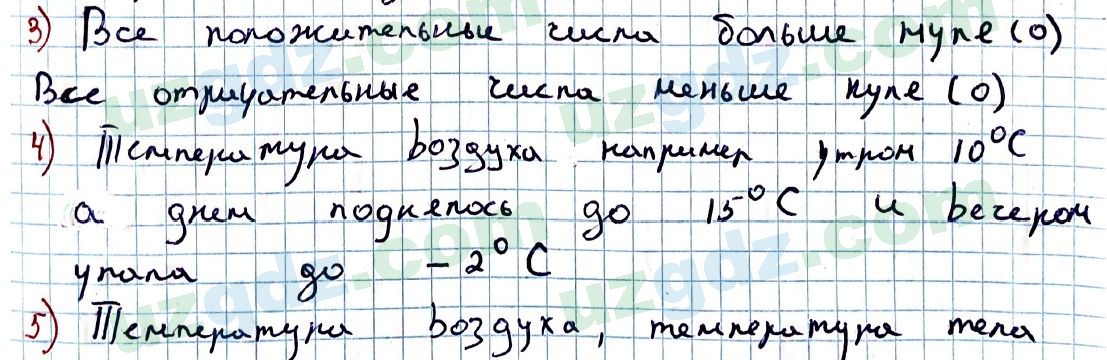 3) Все положительные числа больше нуле (0)
Все отрицательные числа меньше нуле (0)
4) Температура воздуха например утром 10⁰C
а днем поднелось до 15⁰C и вечером
упала до -2⁰C
5) Температура воздуха, температура тела
uzgdz.com uzgdz.com
uzgdz.com uzgdz.com